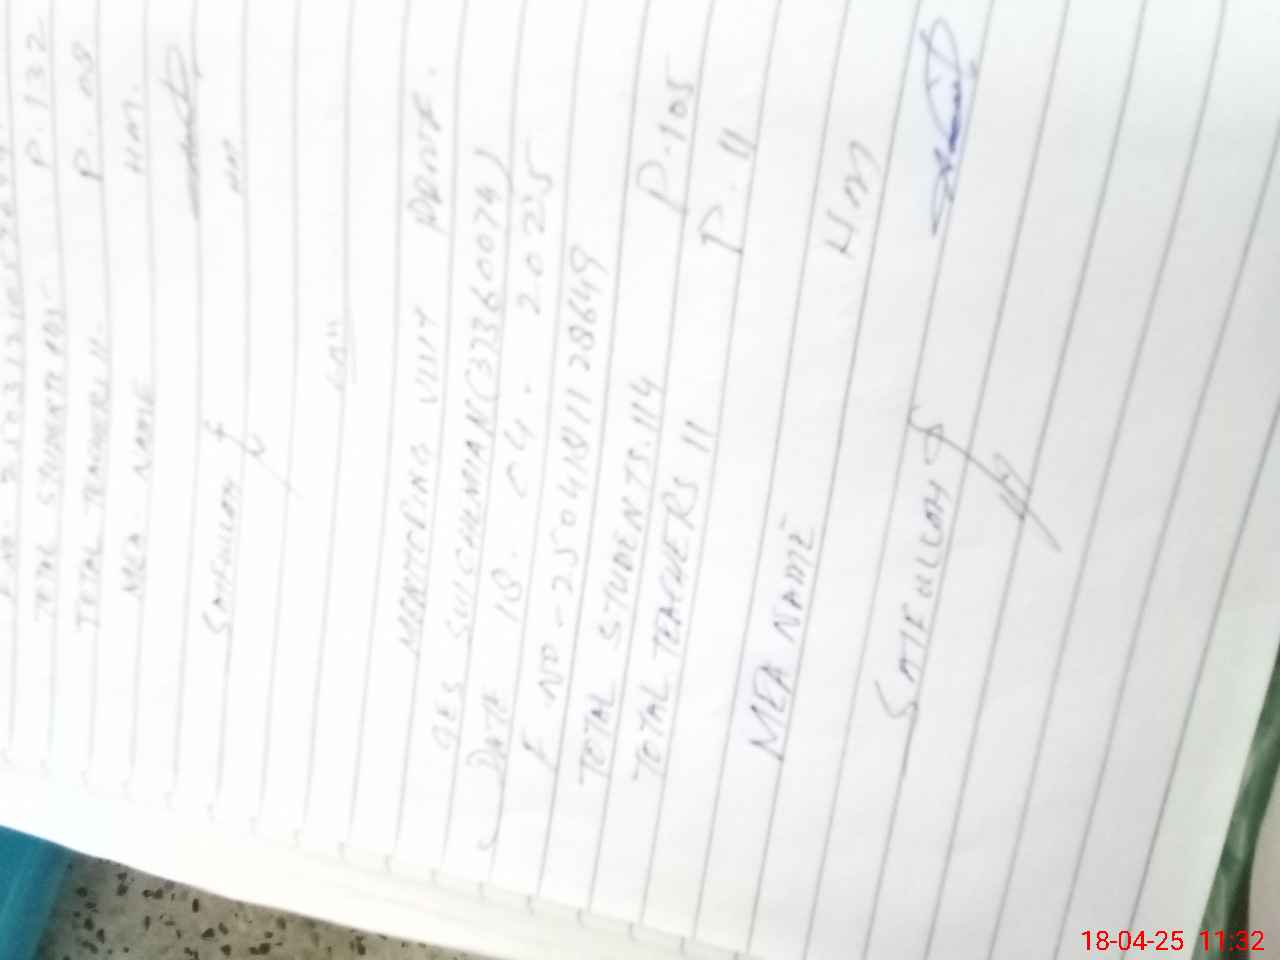 TOTAL STUDENTS 135 P. 132
TOTAL TEACHERS 11. P. 08
MEA NAME HM.
SAIFULLAH HM
MONITORING VISIT PROOF.
GES SULCHEMIAN (37360074)
DATE 18. 04. 2025
F. NO - 2504N1128649
TOTAL STUDENTS. 114 P. 105
TOTAL TEACHERS 11 P. 11
MEA NAME H.M
SAIFULLAH
18-04-25 11:32